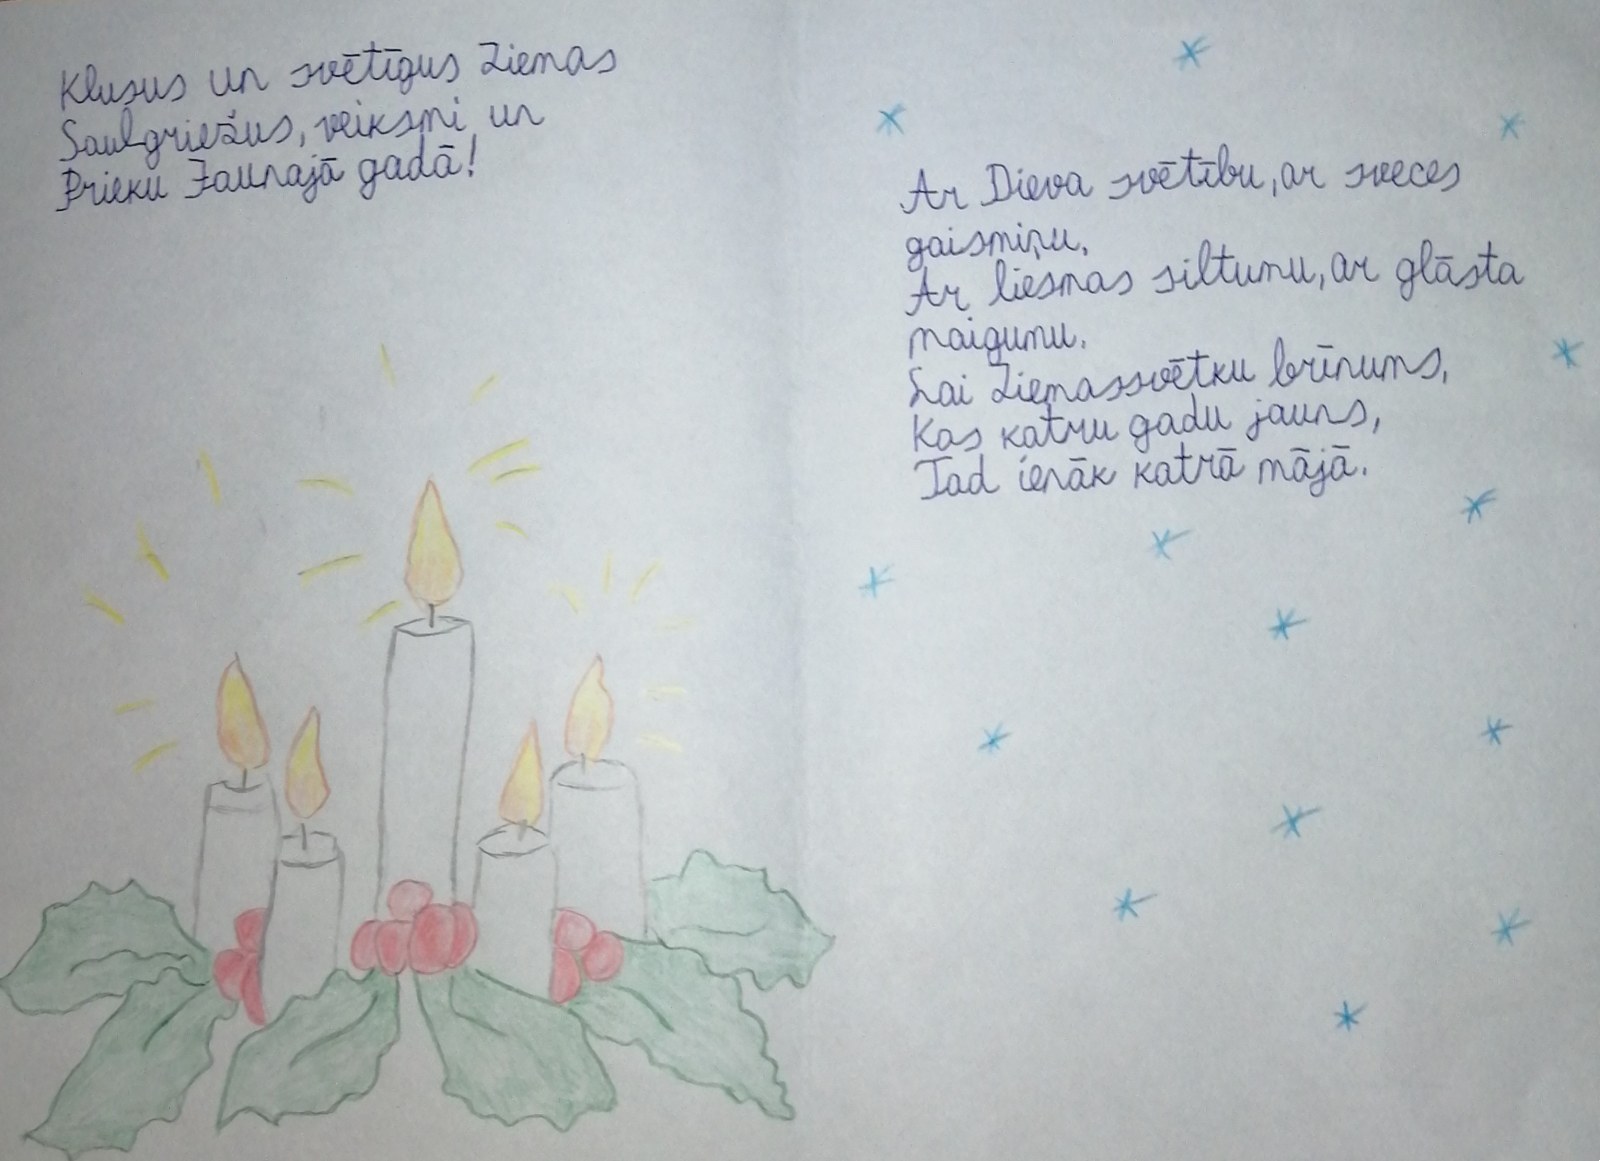 Klusus un svētīgus Ziemas
Saulgriežus, veiksmi un
Prieku Jaunajā gadā!
Ar Dieva svētību, ar sveces
gaismiņu,
Ar liesmas siltumu, ar glāsta
maigumu.
Lai Ziemassvētku brīnums,
Kas katru gadu jauns,
Tad ienāk katrā mājā.